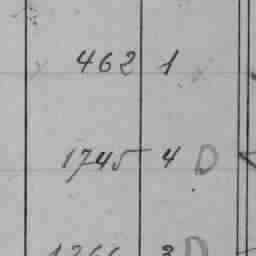 462 1
1745 4 D
1266 3 D